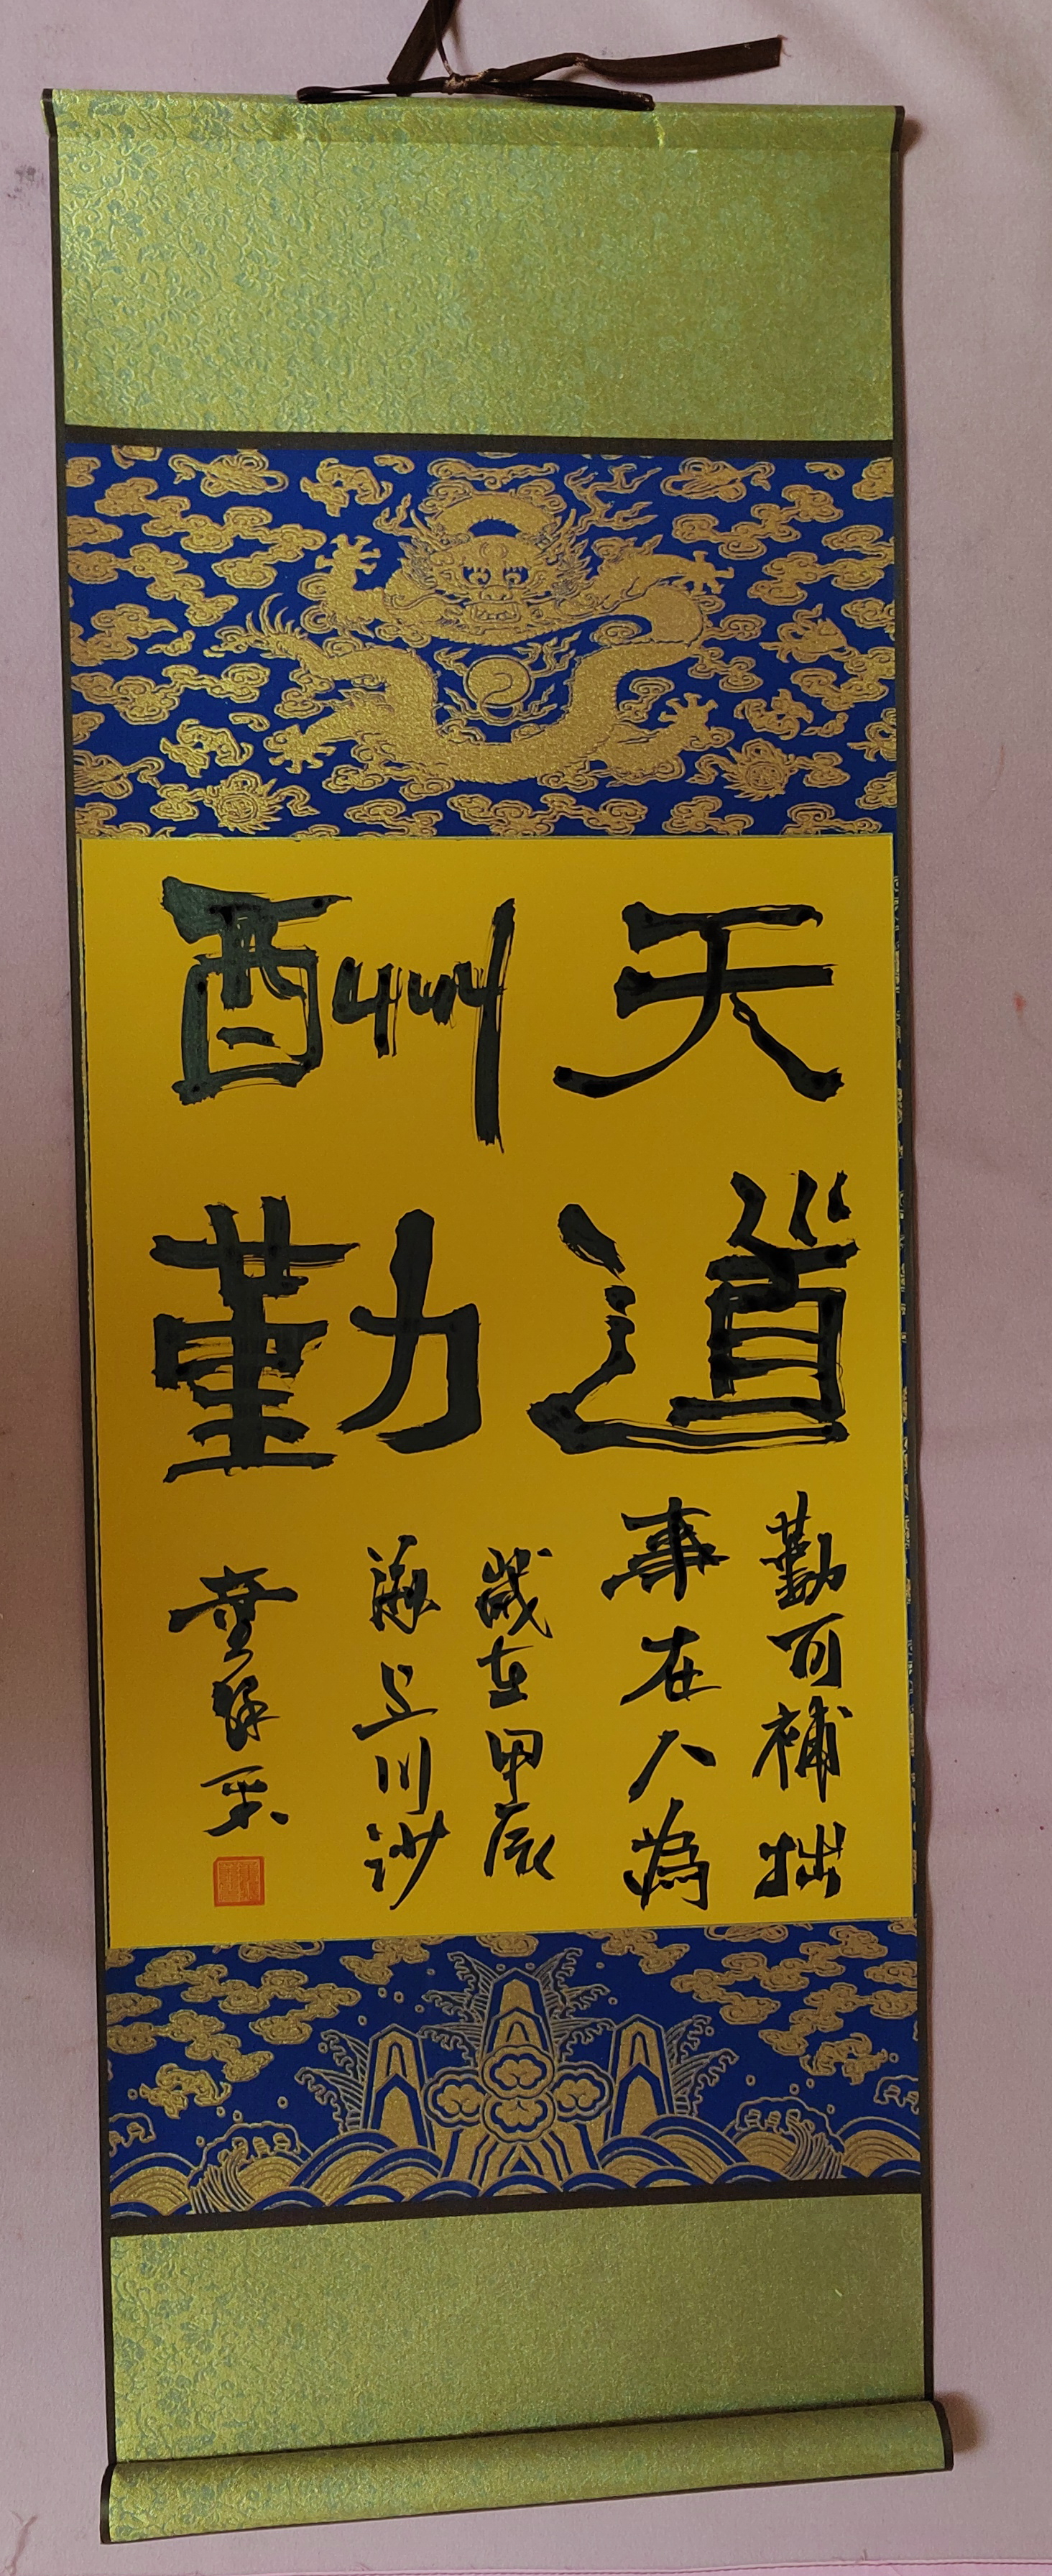 天道
酬勤
勤可補拙
事在人為
歲在甲辰
海上川沙